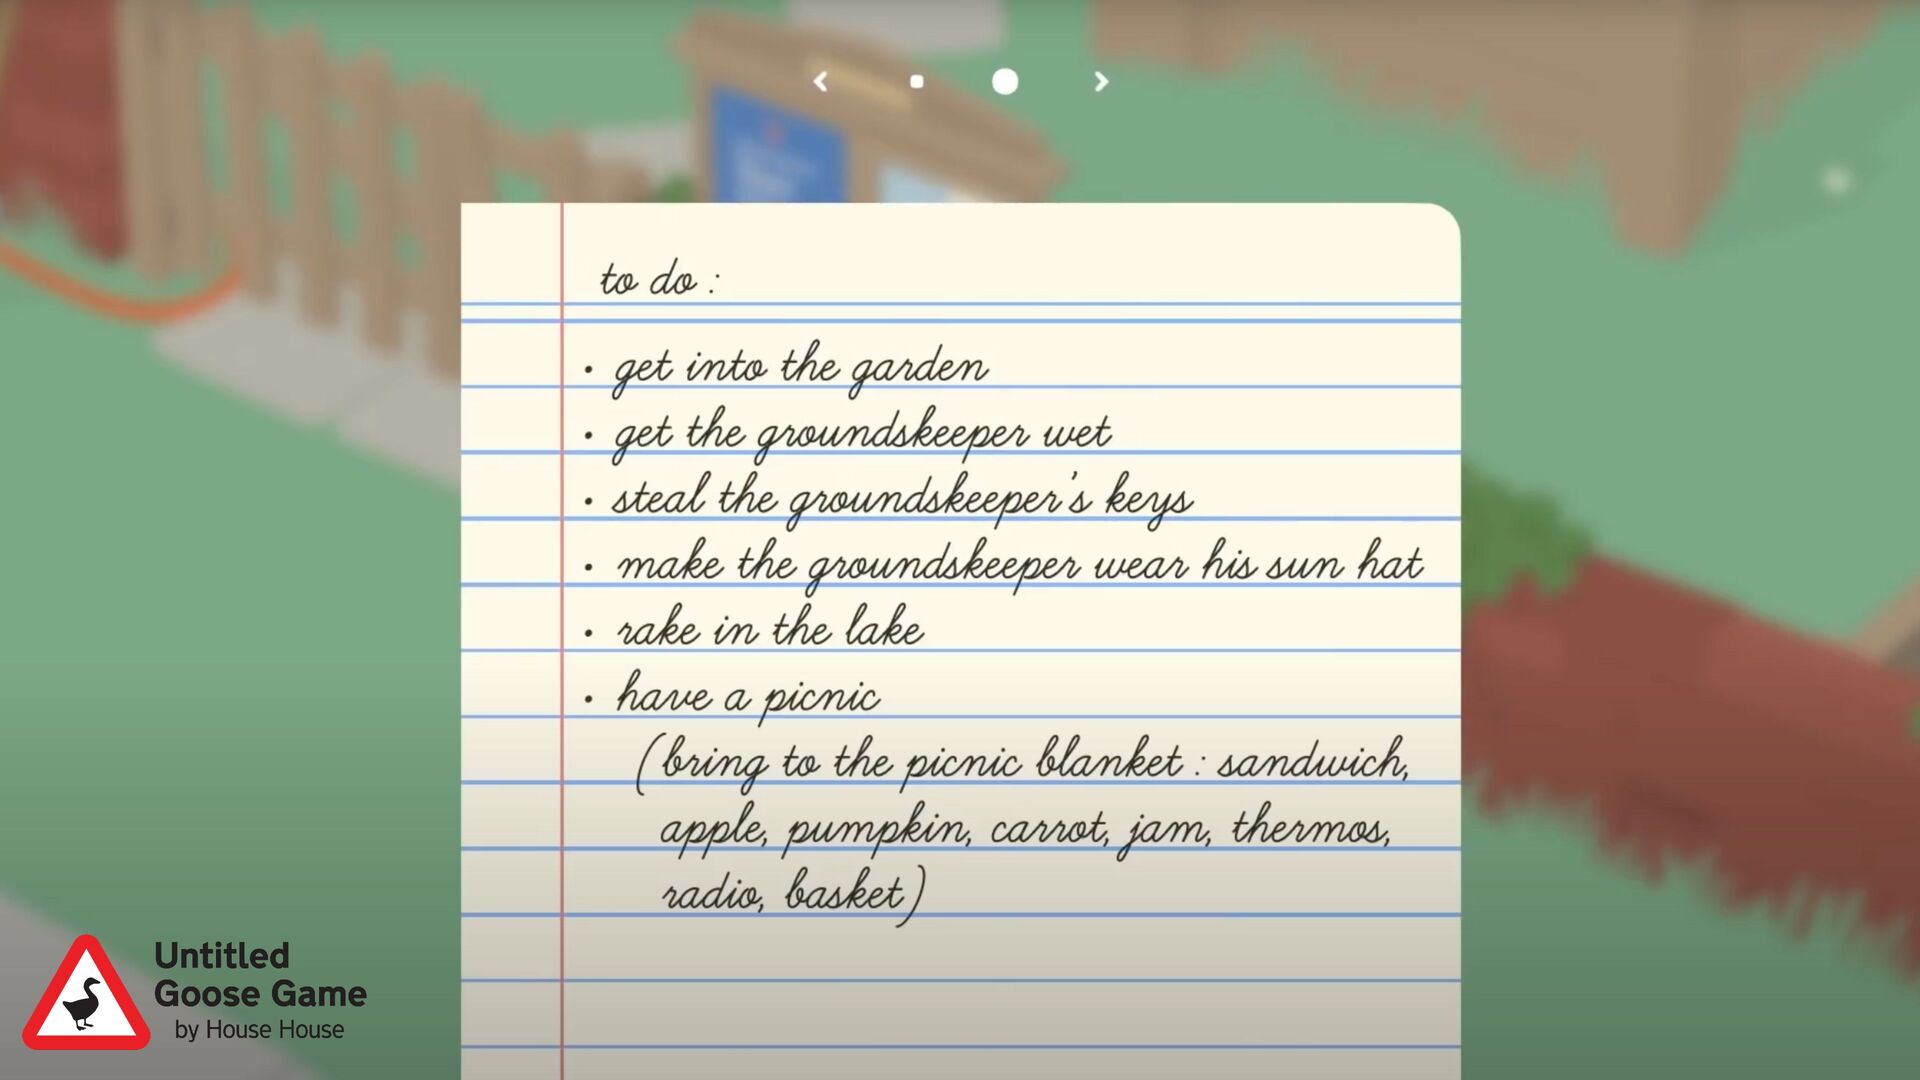 to do :
• get into the garden
• get the groundskeeper wet
• steal the groundskeeper's keys
• make the groundskeeper wear his sun hat
• rake in the lake
• have a picnic
(bring to the picnic blanket : sandwich,
apple, pumpkin, carrot, jam, thermos,
radio, basket)
Untitled
Goose Game
by House House